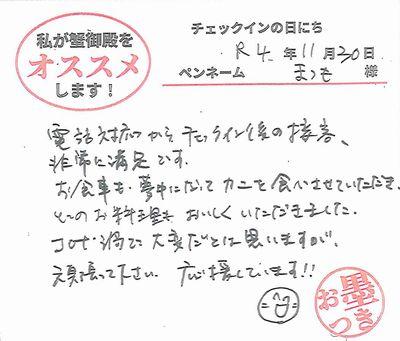 私が蟹御殿を
オススメ
します!
チェックインの日にち
R4. 年 11 月 30 日
ペンネーム まつも 様
電話対応からチェックイン後の接客、
非常に満足です。
お食事も夢中になってカニを食べさせていただき、
どのお料理もおいしくいただきました。
コロナ渦で大変だとは思いますが、
頑張って下さい。応援しています!!
お墨つき